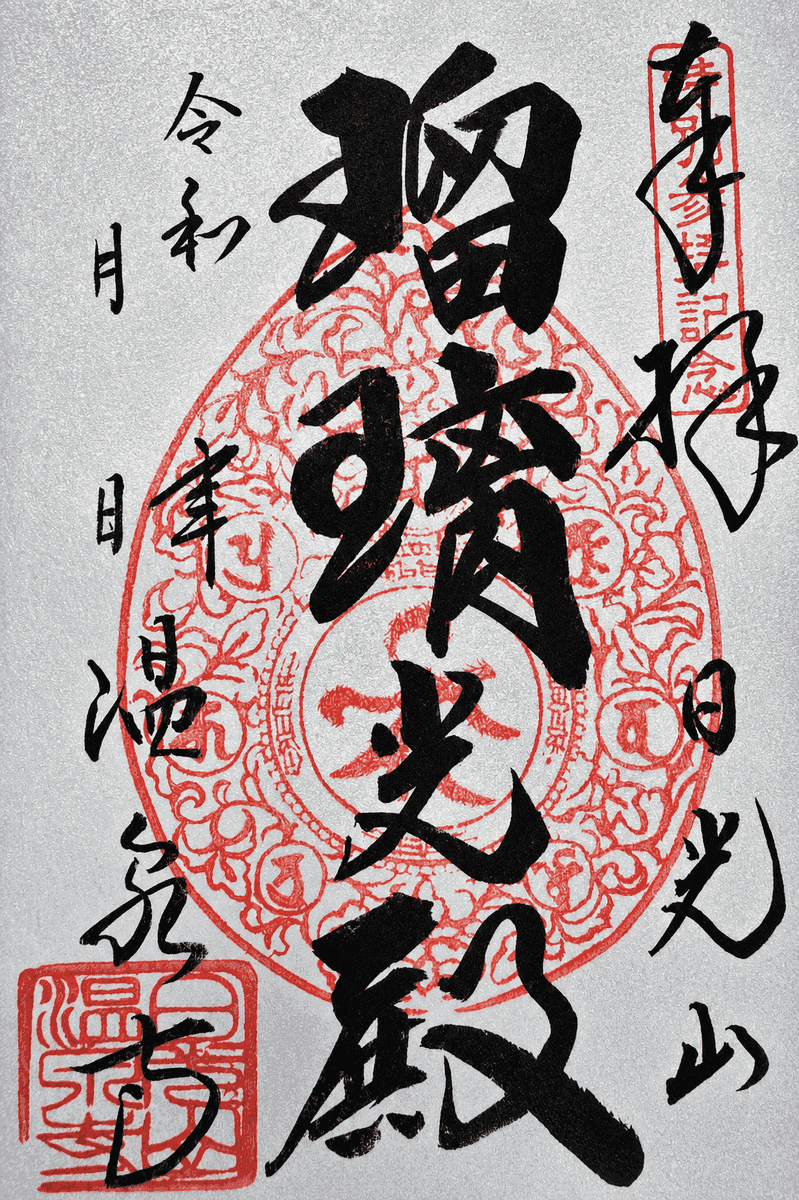 奉拝
日光山
特別参拝記念
瑠璃光殿
令和 年
月 日
温泉寺
日光山温泉寺